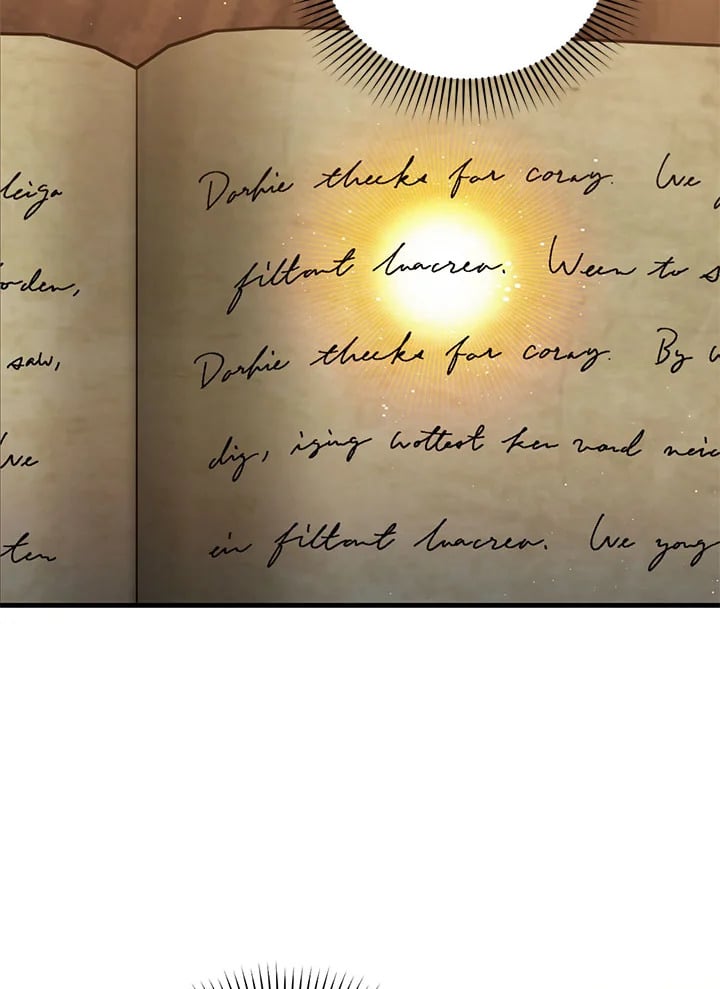 leiga
orden,
saw,
We
ten
Dorhie theeks for coray. We y
filtont luacreo. Ween to s
Dorhie theeks for coray. By w
dig, iging wottest ken vord neic
in filtont luacreo. We yong